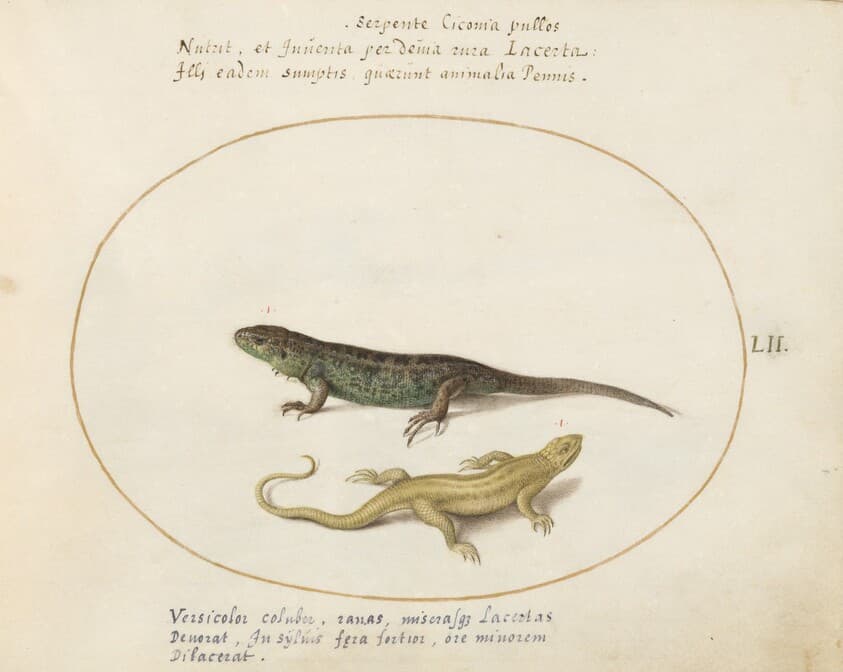 . Serpente Ciconia pullos
Nutrit, et Inuenta per deuia rura Lacerta:
Illi eadem sumptis quærunt animalia Pennis.
.I.
LII.
.I.
Versicolor coluber, ranas, miserasqȝ Lacertas
Deuorat, In syluis fęra fortior, ore minorem
Dilacerat.